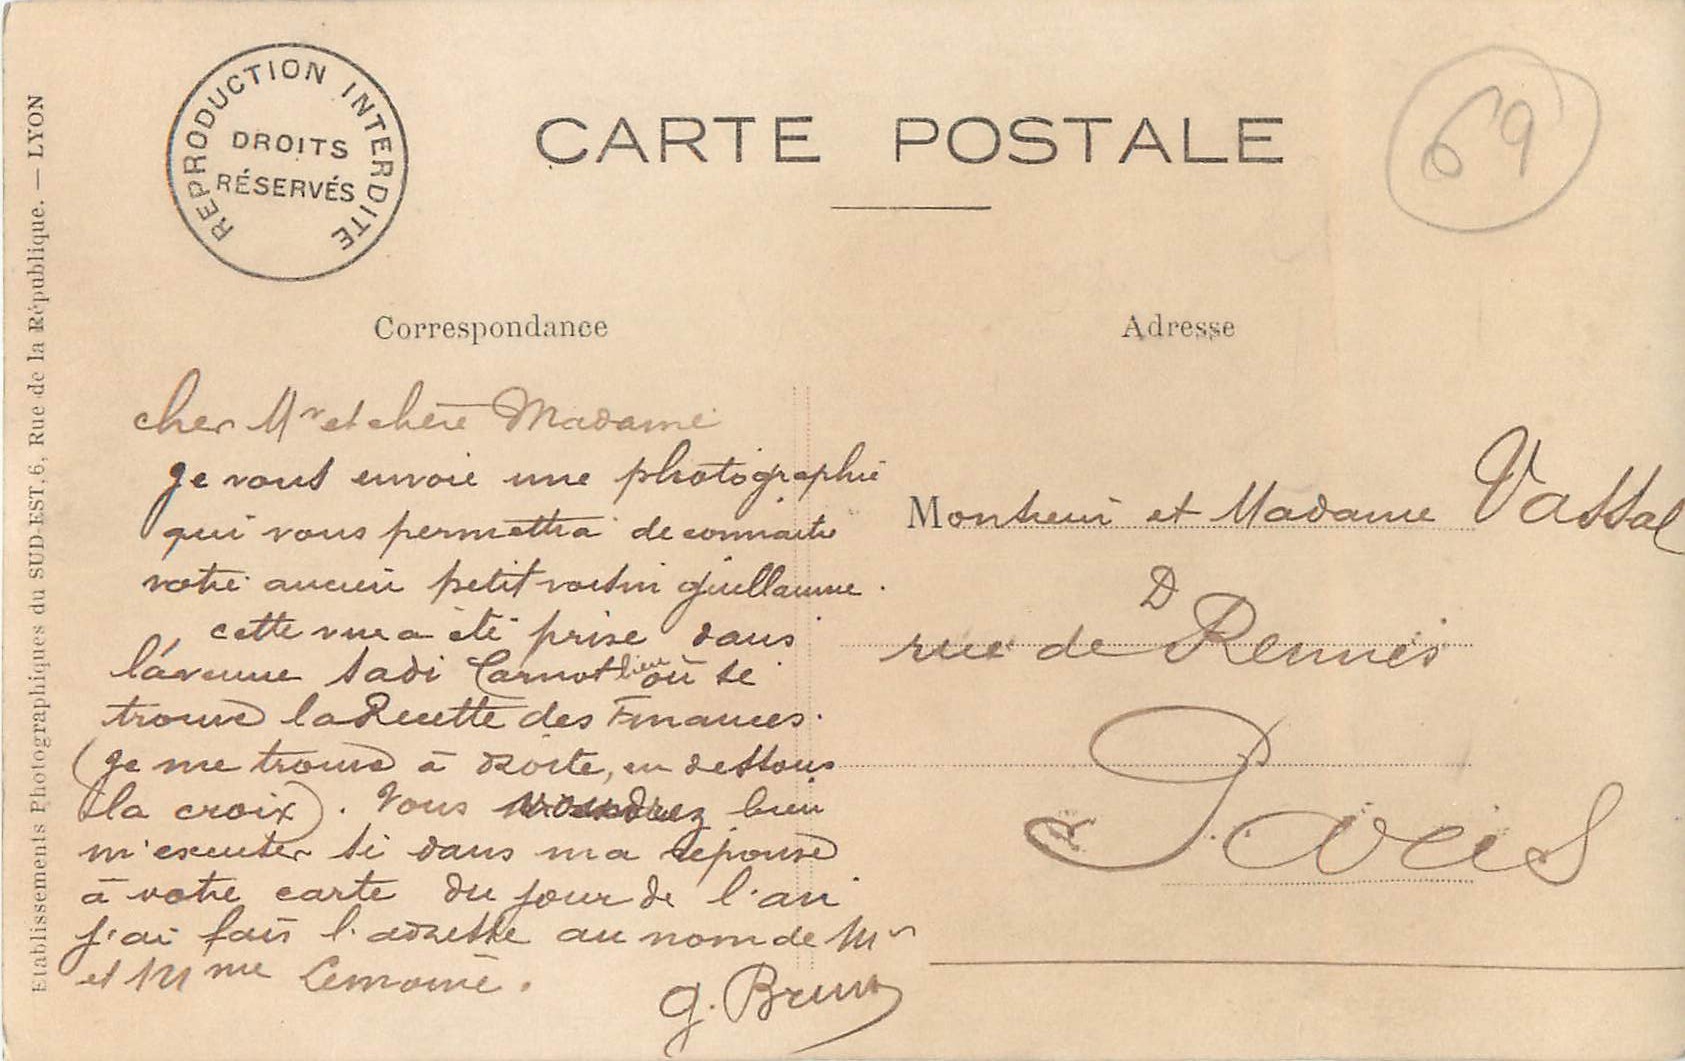 REPRODUCTION INTERDITE
DROITS
RÉSERVÉS
CARTE POSTALE
69
Correspondance
Adresse
Etablissements Photographiques du SUD-EST, 6, Rue de la République. — LYON
cher Mr et chère Madame
Je vous envoie une photographie
qui vous permettra de connaitre
votre ancien petit voisin Guillaume.
cette vue a été prise dans
l'avenue Sadi Carnot lieu où se
trouve la Recette des Finances.
(Je me trouve à droite, en dessous
la croix). Vous voudrez bien
m'excuser si dans ma réponse
à votre carte du jour de l'an
j'ai fais l'adresse au nom de Mr
et Mme Lemoine.
G. Brun
Monsieur et Madame Vassal
D
rue de Rennes
Paris